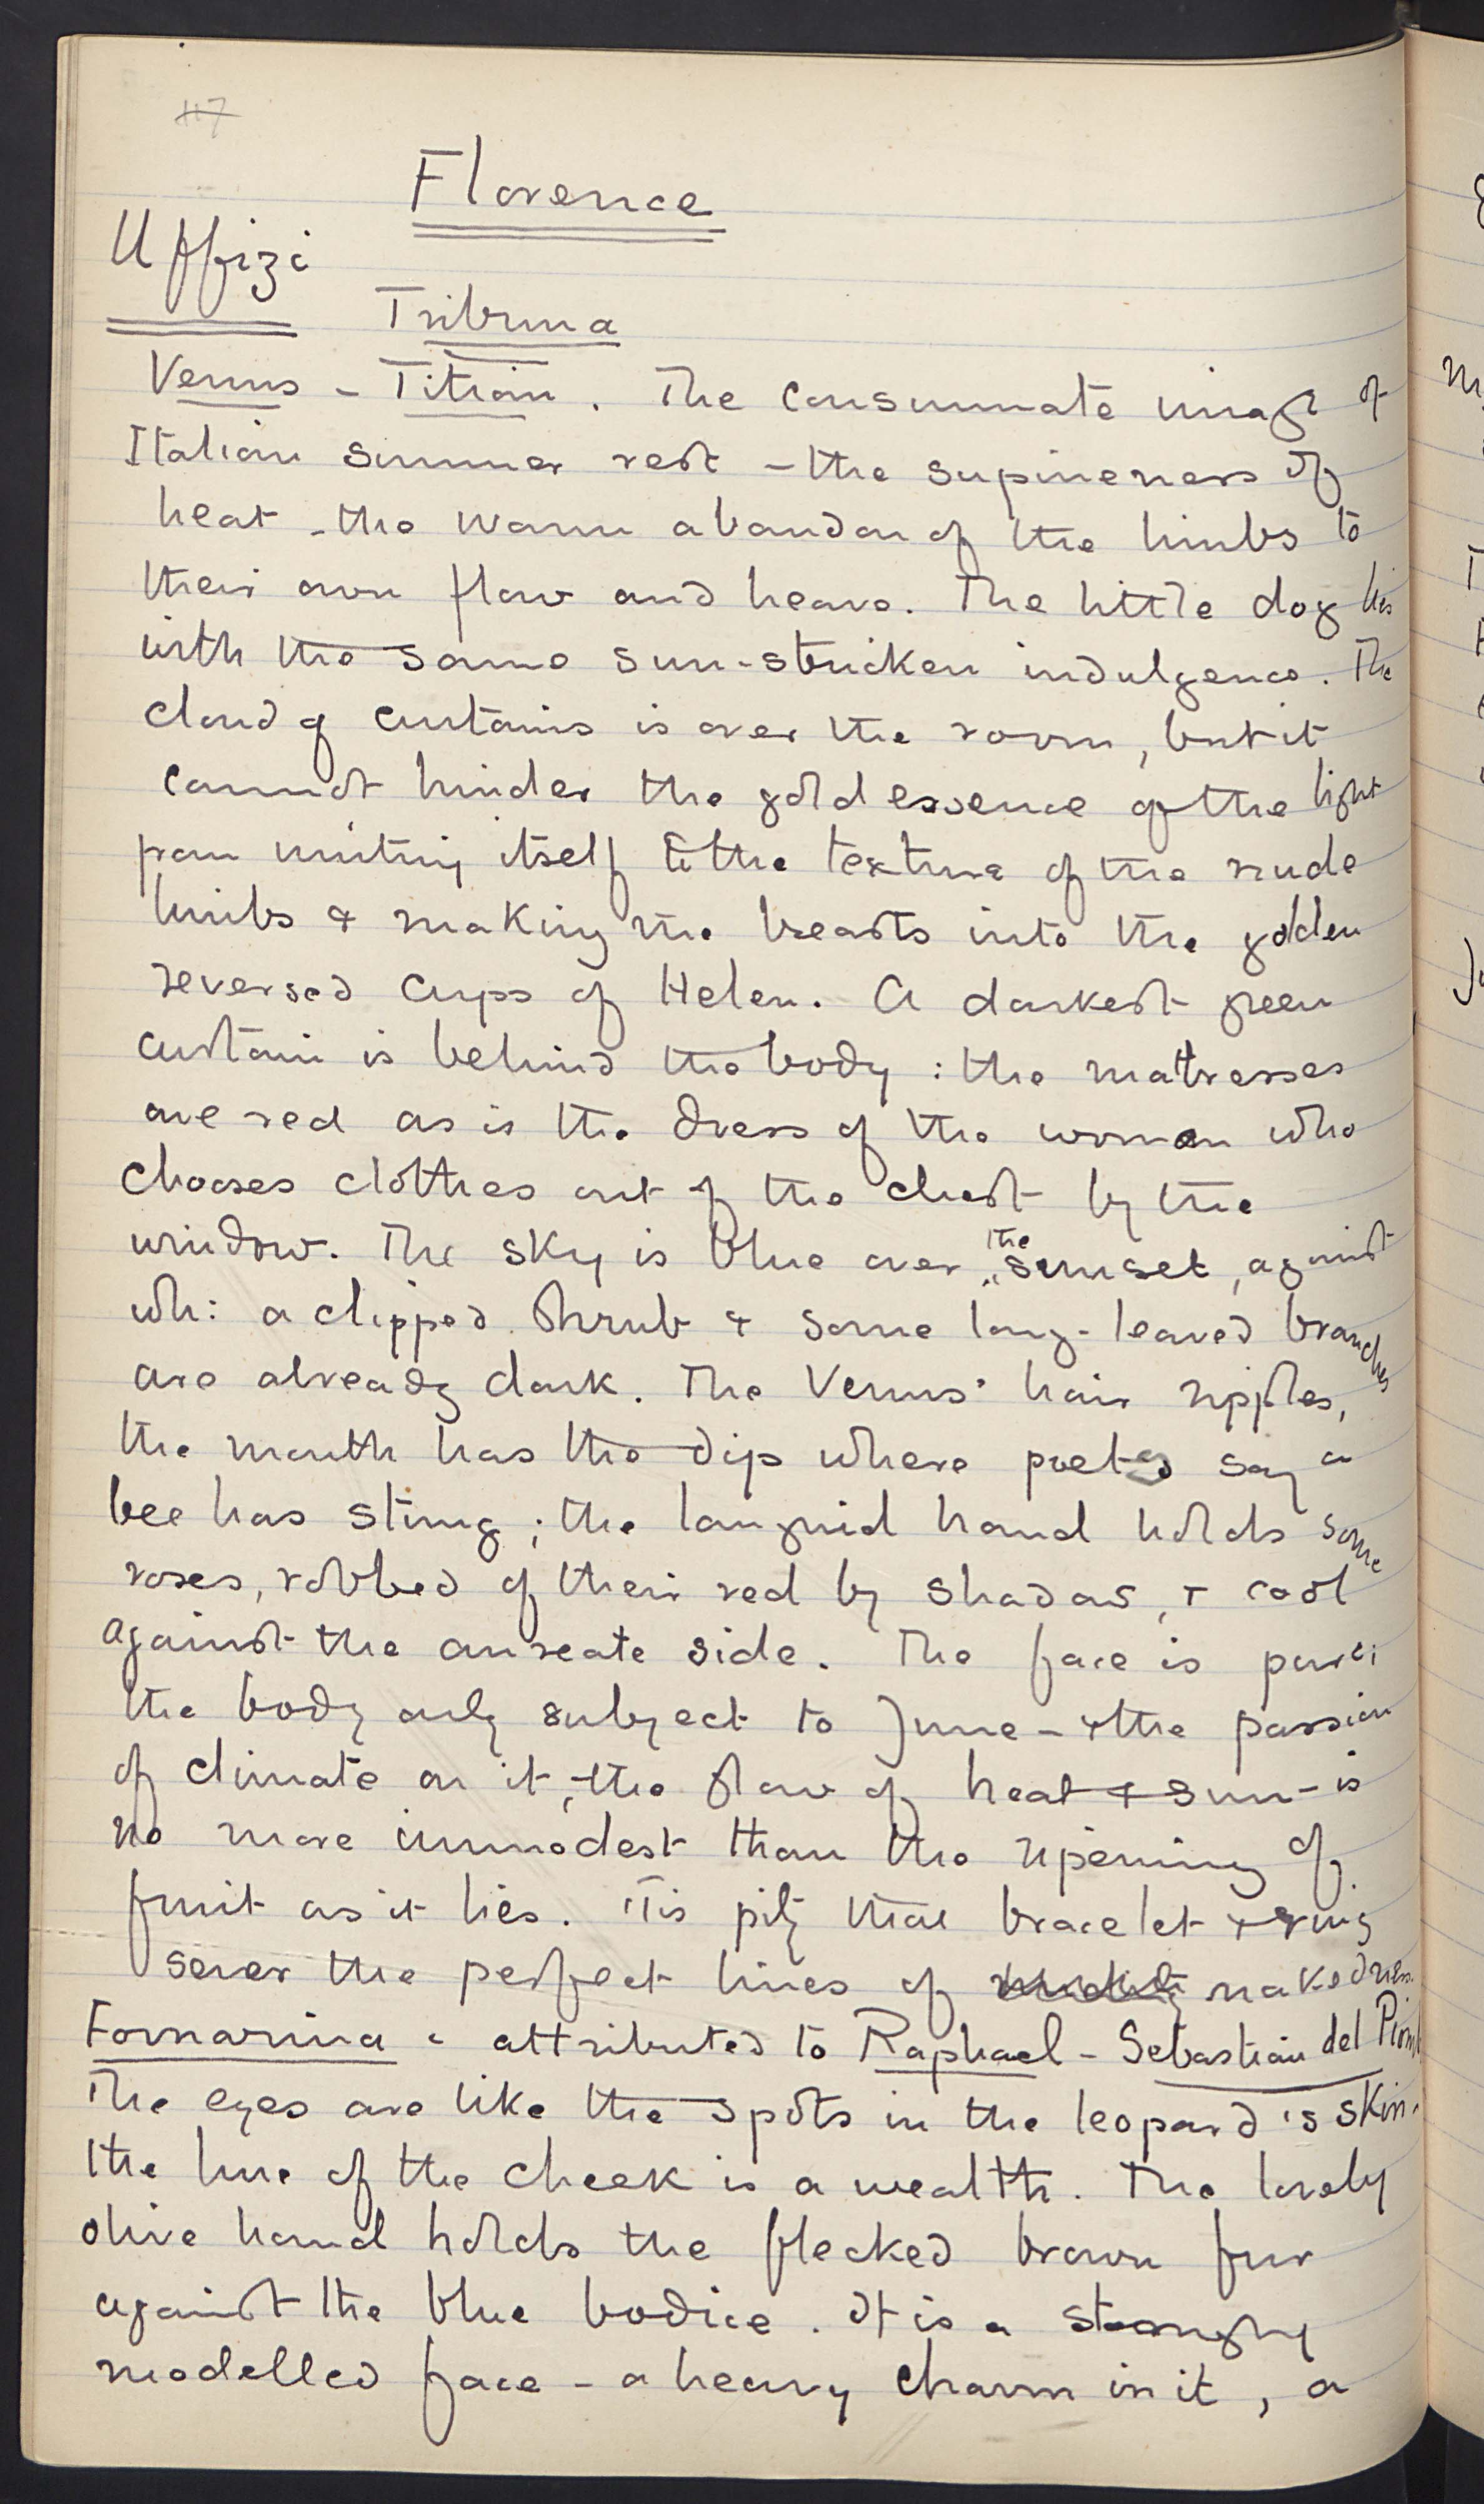 117
Florence
Uffizi
Tribuna
Venus - Titian. The consummate image of
Italian summer rest - the supineness of
heat - the warm abandon of the limbs to
their own flow and heave. The little dog lies
with the same sun-stricken indulgence. The
cloud of curtains is over the room, but it
cannot hinder the gold essence of the light
from uniting itself to the texture of the nude
limbs & making the breasts into the golden
reversed cups of Helen. A darkest green
curtain is behind the body: the matresses
are red as is the dress of the woman who
chooses clothes out of the chest by the
window. The sky is blue over the sunset, against
wh: a clipped shrub & some long-leaved branches
are already dark. The Venus' hair ripples,
the mouth has the dip where poets say a
bee has stung; the languid hand holds some
roses, robbed of their red by shadow, & cool
against the aureate side. The face is pure;
the body only subject to June - & the passion
of climate on it, the flow of heat & sun - is
no more immodest than the ripening of
fruit as it lies. 'Tis pity that bracelet & ring
sever the perfect lines of nakedness.
Fornarina - attributed to Raphael - Sebastian del
The eyes are like the spots in the leopard's skin.
the line of the cheek is a wealth. The lovely
olive hand holds the flecked brown fur
against the blue bodice. It is a strongly
modelled face - a heavy charm in it, a